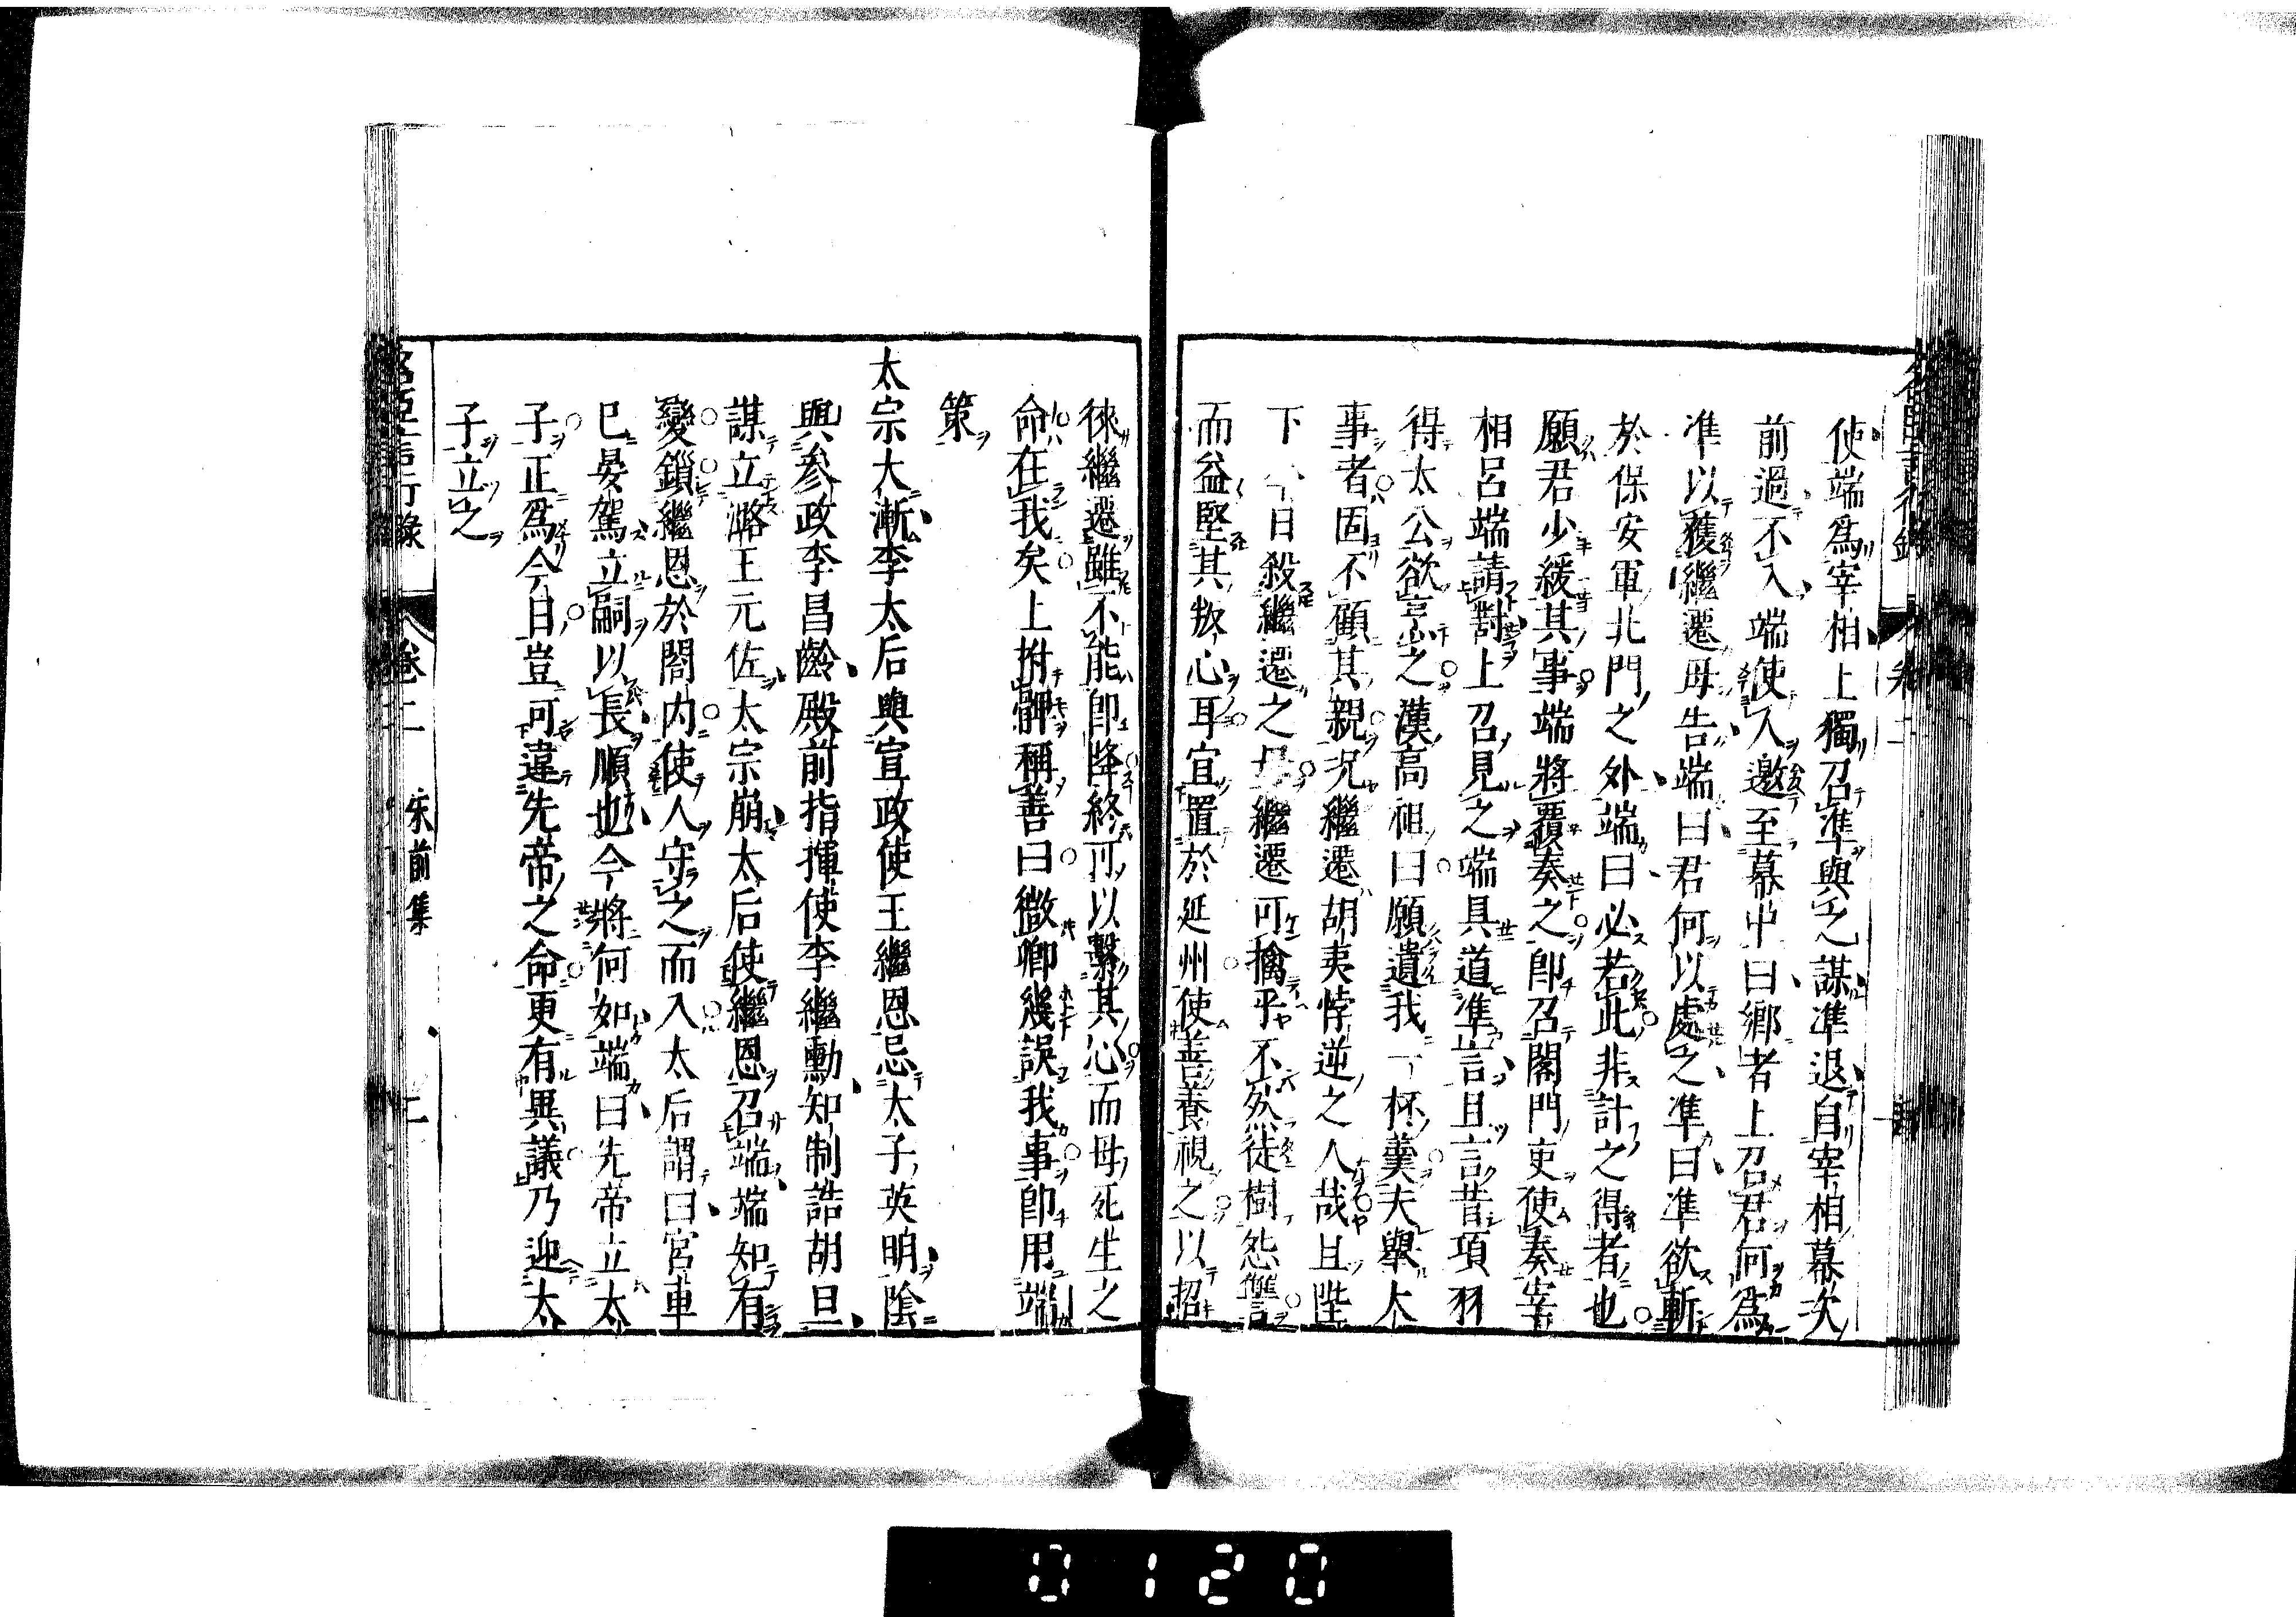 使端爲宰相上獨召準與之謀準退自宰相幕次
前過不入端使人邀至幕中曰鄉者上召君何爲
準以獲繼遷母告端曰君何以處之準曰準欲斬
於保安軍北門之外端曰必若此非計之得者也
願君少緩其事端將覆奏之卽召閤門吏使奏宰
相呂端請對上召見之端具道準言且言昔項羽
得太公欲烹之漢高祖曰願遺我一杯羹夫舉大
事者固不顧其親況繼遷胡夷悖逆之人哉且陛
下今日殺繼遷之母繼遷可擒乎不然徒樹怨讐
而益堅其叛心耳宜置於延州使善養視之以招
徠繼遷雖不能卽降終可以繫其心而母死生之
命在我矣上拊髀稱善曰微卿幾誤我事卽用端
策
太宗大漸李太后與宣政使王繼恩忌太子英明陰
與參政李昌齡殿前指揮使李繼勳知制誥胡旦
謀立潞王元佐太宗崩太后使繼恩召端端知有
變鎖繼恩於閤內使人守之而入太后謂曰宮車
已晏駕立嗣以長順也今將何如端曰先帝立太
子正爲今日豈可違先帝之命更有異議乃迎太
子立之
名臣言行錄 卷二 宋前集
0120